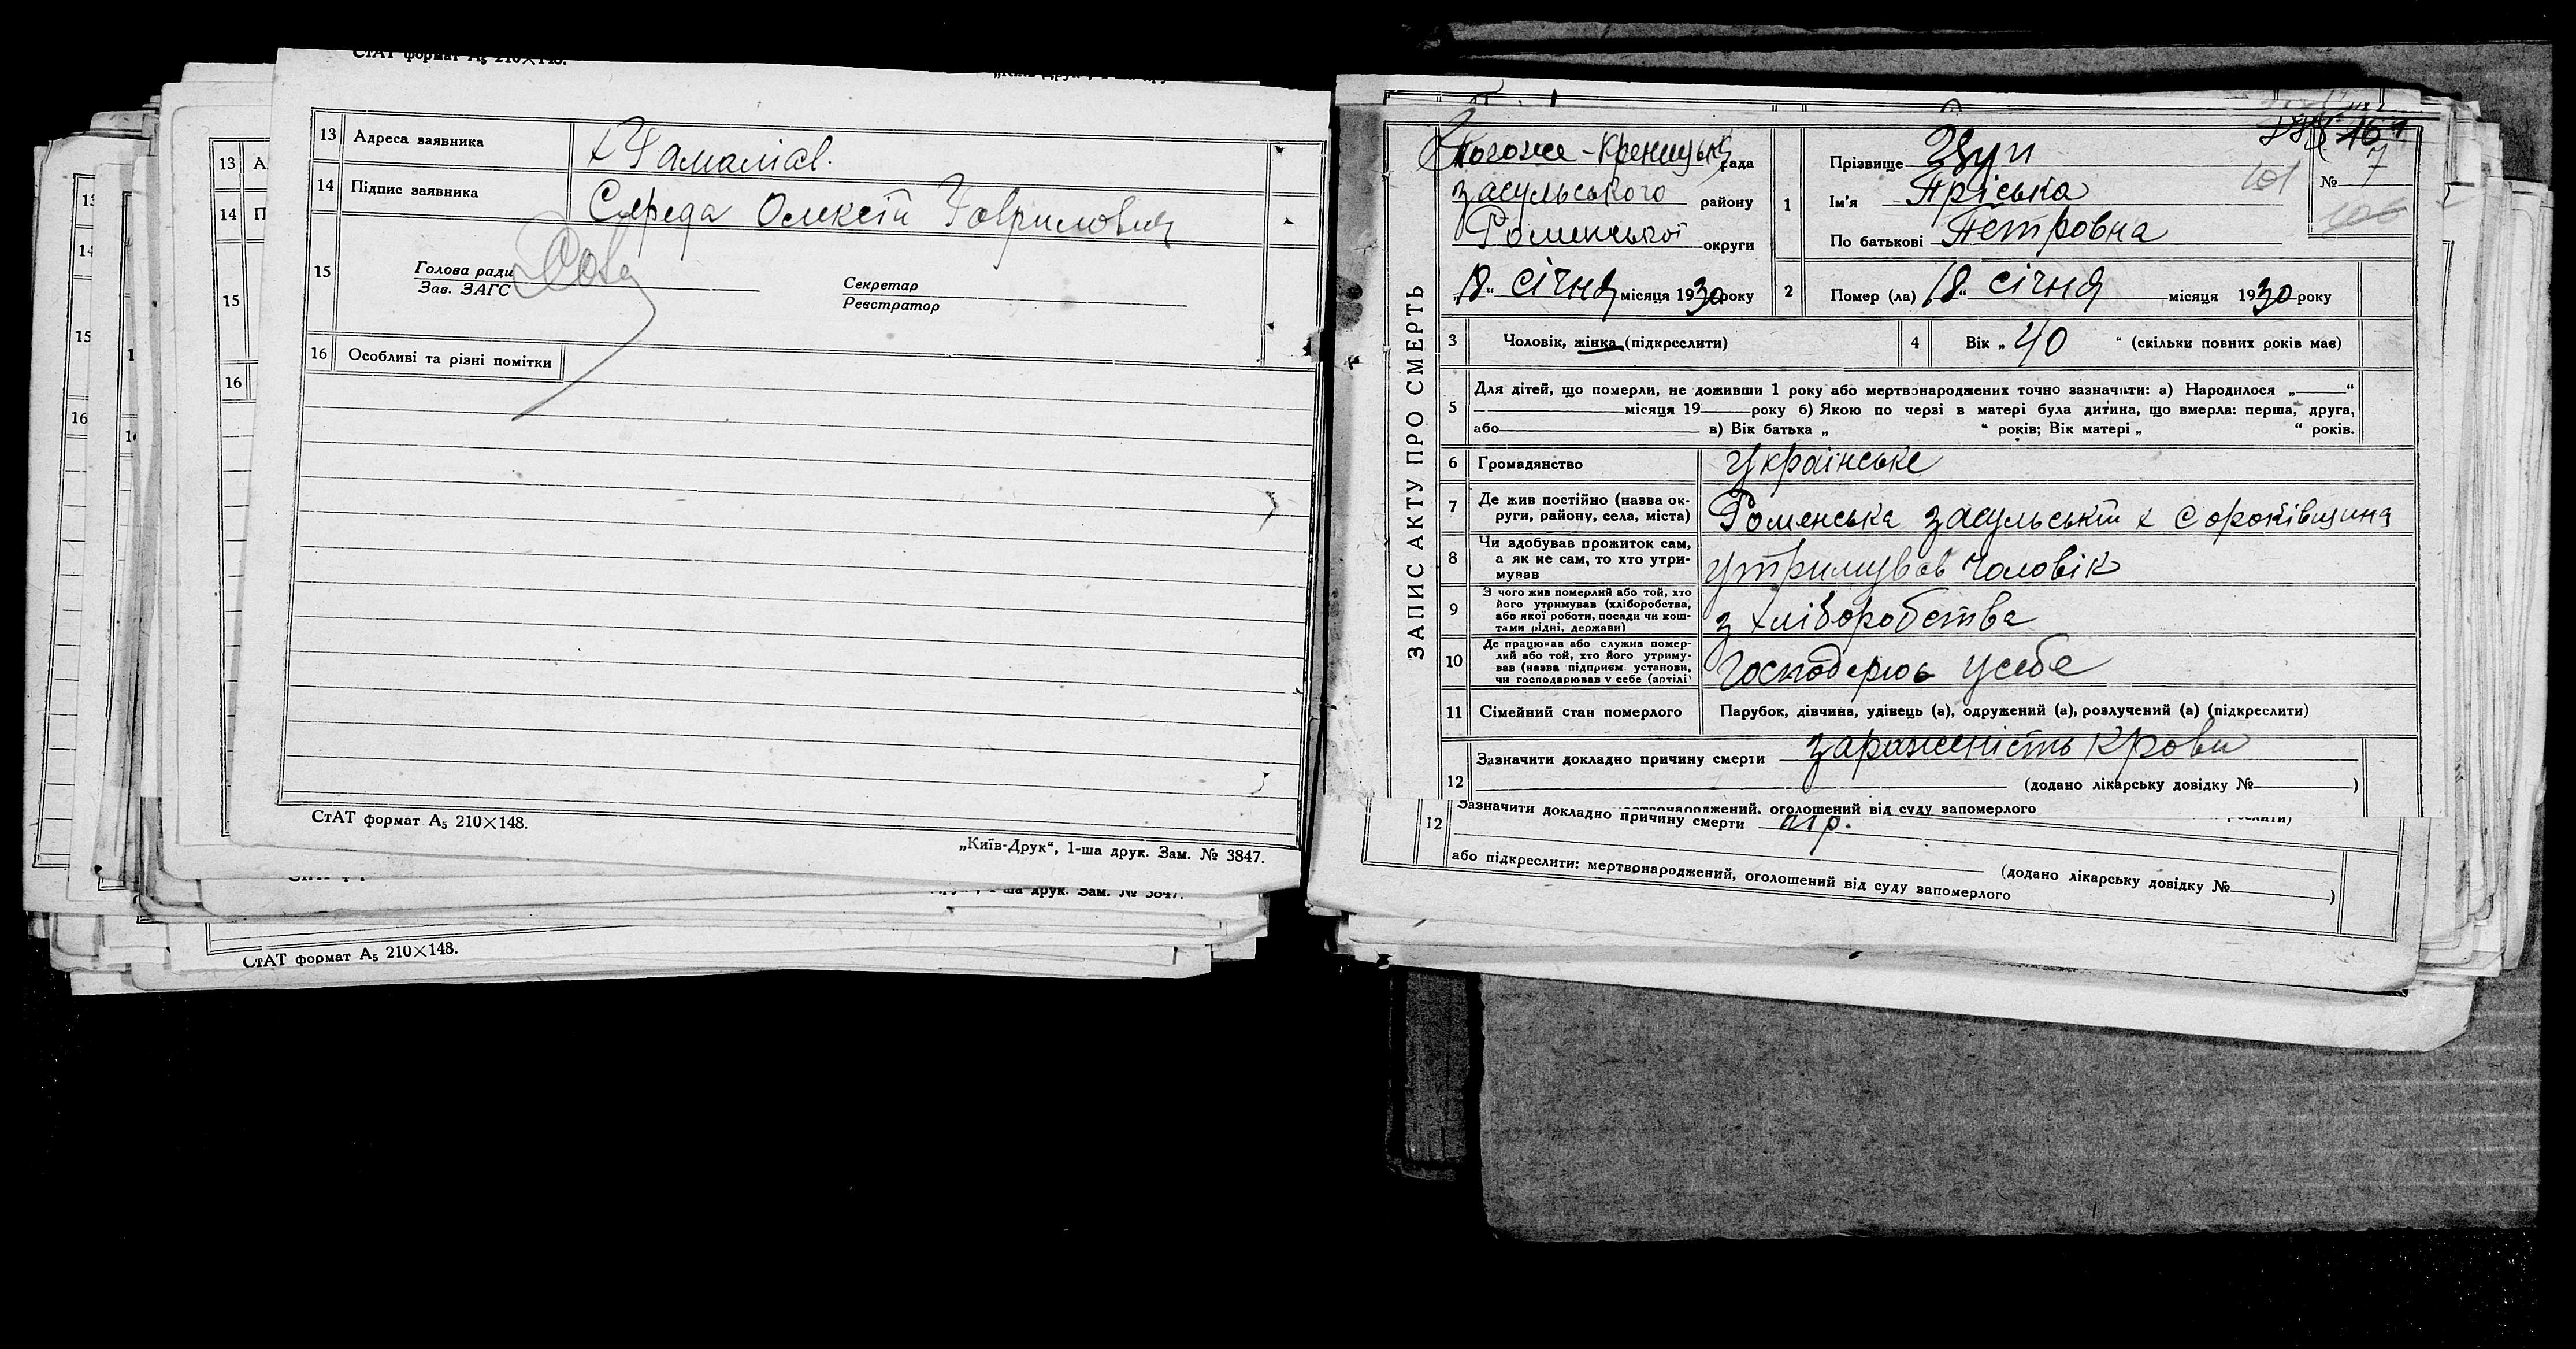 СтАТ формат А5 210×148.
13 Адреса заявника х Гамаліїв.
14 Підпис заявника Середа Олексій Гаврилович
15 Голова ради
Зав. ЗАГС
Секретар
Реєстратор
16 Особливі та різні помітки
СтАТ формат А5 210×148.
„Київ-Друк“, 1-ша друк. Зам. № 3847.
ша друк. Зам. № 3847.
СтАТ формат А5 210×148.
13 А
14 П
15
16
ЗАПИС АКТУ ПРО СМЕРТЬ
рада
засульського району
Роменської округи
18 “ січня місяця 1930 року
1 Прізвище
Ім'я Пріська
По батькові Петровна
101
№ 7
2 Помер (ла) 18 “ січня місяця 1930 року
3 Чоловік, жінка (підкреслити)
4 Вік „ 40 “ (скільки повних років має)
5 Для дітей, що померли, не доживши 1 року або мертвонароджених точно зазначити: а) Народилося „ “
місяця 19 року б) Якою по черзі в матері була дитина, що вмерла: перша, друга,
або в) Вік батька „ “ років; Вік матері „ “ років.
6 Громадянство Українське
7 Де жив постійно (назва ок-
руги, району, села, міста) Роменська засульський х Сороківщина
8 Чи здобував прожиток сам,
а як не сам, то хто утри-
мував утримував чоловік
9 З чого жив померлий або той, хто
його утримував (хліборобства,
або якої роботи, посади чи кош-
тами рідні, держави) з хліборобства
10 Де працював або служив помер-
лий або той, хто його утриму-
вав (назва підприєм. установи,
чи господарював у себе (артілі) усебе
11 Сімейний стан померлого Парубок, дівчина, удівець (а), одружений (а), розлучений (а) (підкреслити)
12 Зазначити докладно причину смерти зараженість крови
(додано лікарську довідку № )
мертвонароджений, оголошений від суду вапомерлого
12 Зазначити докладно причину смерти
(додано лікарську довідку № )
або підкреслити: мертвонароджений, оголошений від суду вапомерлого